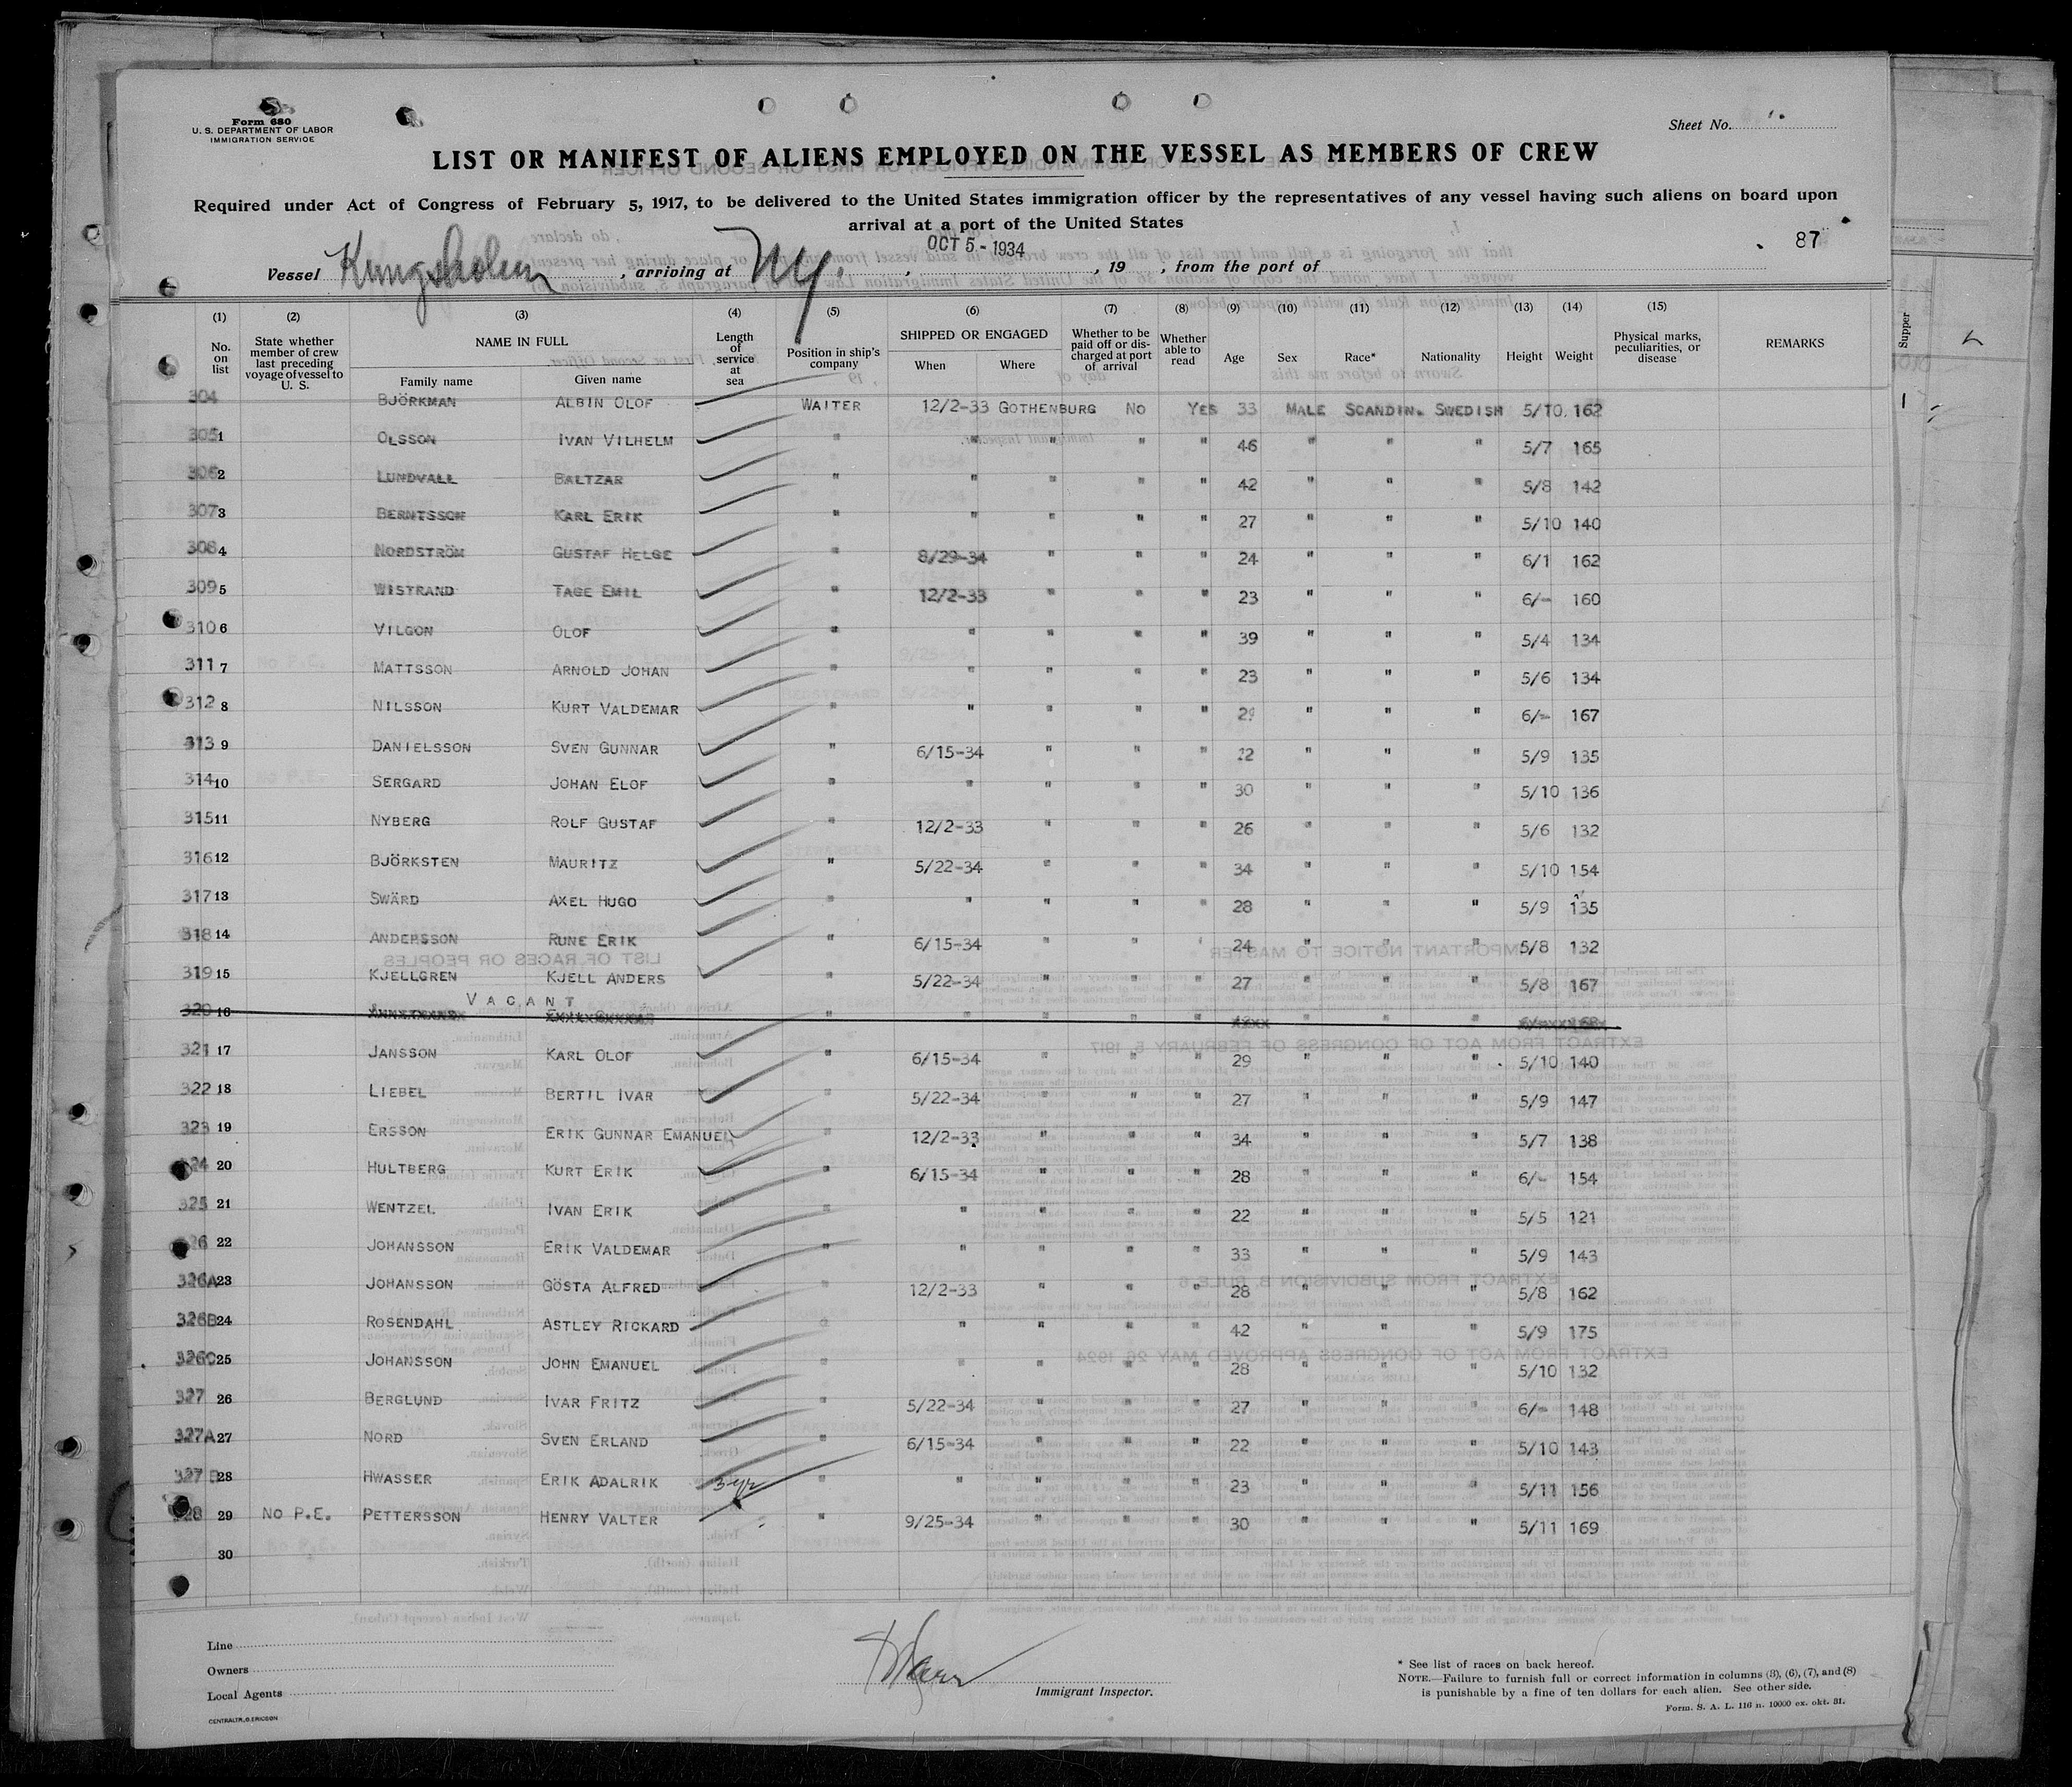 Form 680
U. S. DEPARTMENT OF LABOR
IMMIGRATION SERVICE
Sheet No.
LIST OR MANIFEST OF ALIENS EMPLOYED ON THE VESSEL AS MEMBERS OF CREW
Required under Act of Congress of February 5, 1917, to be delivered to the United States immigration officer by the representatives of any vessel having such aliens on board upon
arrival at a port of the United States
OCT 5 - 1934
87
Vessel Kungsholm, arriving at NY., , 19 , from the port of
(1) (2) (3) (4) (5) (6) (7) (8) (9) (10) (11) (12) (13) (14) (15)
No. on list State whether member of crew last preceding voyage of vessel to U. S. NAME IN FULL Family name Given name Length of service at sea Position in ship's company SHIPPED OR ENGAGED When Where Whether to be paid off or discharged at port of arrival Whether able to read Age Sex Race* Nationality Height Weight Physical marks, peculiarities, or disease REMARKS Supper
304 BJÖRKMAN ALBIN OLOF WAITER 12/2-33 GOTHENBURG NO YES 33 MALE SCANDIN. SWEDISH 5/10 162
305 1 OLSSON IVAN VILHELM " " " " " 46 " " " 5/7 165
306 2 LUNDVALL BALTZAR " " " " " 42 " " " 5/8 142
307 3 BERNTSSON KARL ERIK " " " " " 27 " " " 5/10 140
308 4 NORDSTRÖM GUSTAF HELGE " 8/29-34 " " " 24 " " " 6/1 162
309 5 WISTRAND TAGE EMIL " 12/2-33 " " " 23 " " " 6/- 160
310 6 VILGON OLOF " " " " " 39 " " " 5/4 134
311 7 MATTSSON ARNOLD JOHAN " " " " " 23 " " " 5/6 134
312 8 NILSSON KURT VALDEMAR " " " " " 29 " " " 6/- 167
313 9 DANIELSSON SVEN GUNNAR " 6/15-34 " " " " " " 5/9 135
314 10 SERGARD JOHAN ELOF " " " " " 30 " " " 5/10 136
315 11 NYBERG ROLF GUSTAF " 12/2-33 " " " 26 " " " 5/6 132
316 12 BJÖRKSTEN MAURITZ " 5/22-34 " " " 34 " " " 5/10 154
317 13 SWÄRD AXEL HUGO " " " " " 28 " " " 5/9 135
318 14 ANDERSSON RUNE ERIK " 6/15-34 " " " 24 " " " 5/8 132
319 15 KJELLGREN KJELL ANDERS " 5/22-34 " " " 27 " " " 5/8 167
320 16 VACANT
321 17 JANSSON KARL OLOF " 6/15-34 " " " 29 " " " 5/10 140
322 18 LIEBEL BERTIL IVAR " 5/22-34 " " " 27 " " " 5/9 147
323 19 ERSSON ERIK GUNNAR EMANUEL " 12/2-33 " " " 34 " " " 5/7 138
324 20 HULTBERG KURT ERIK " 6/15-34 " " " 28 " " " 6/- 154
325 21 WENTZEL IVAN ERIK " " " " " 22 " " " 5/5 121
326 22 JOHANSSON ERIK VALDEMAR " " " " " 33 " " " 5/9 143
326A 23 JOHANSSON GÖSTA ALFRED " 12/2-33 " " " 28 " " " 5/8 162
326B 24 ROSENDAHL ASTLEY RICKARD " " " " " 42 " " " 5/9 175
326C 25 JOHANSSON JOHN EMANUEL " " " " " 28 " " " 5/10 132
327 26 BERGLUND IVAR FRITZ " 5/22-34 " " " 27 " " " 6/- 148
327A 27 NORD SVEN ERLAND " 6/15-34 " " " 22 " " " 5/10 143
327B 28 HWASSER ERIK ADALRIK " " " " " 23 " " " 5/11 156
328 29 NO P.E. PETTERSSON HENRY VALTER 3 yr " 9/25-34 " " " 30 " " " 5/11 169
30
Line
Owners
Local Agents
CENTRALTR., G. ERICSON
Immigrant Inspector.
* See list of races on back hereof.
NOTE.—Failure to furnish full or correct information in columns (3), (6), (7), and (8)
is punishable by a fine of ten dollars for each alien. See other side.
Form. S. A. L. 116 n. 10000 ex. okt. 31.